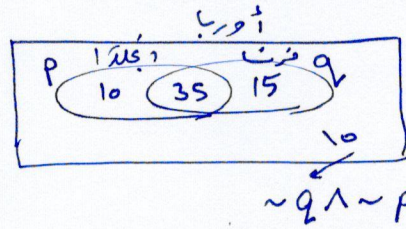 أوربا
p انجلترا فرنسا q
10 35 15
10
~q ∧ ~p